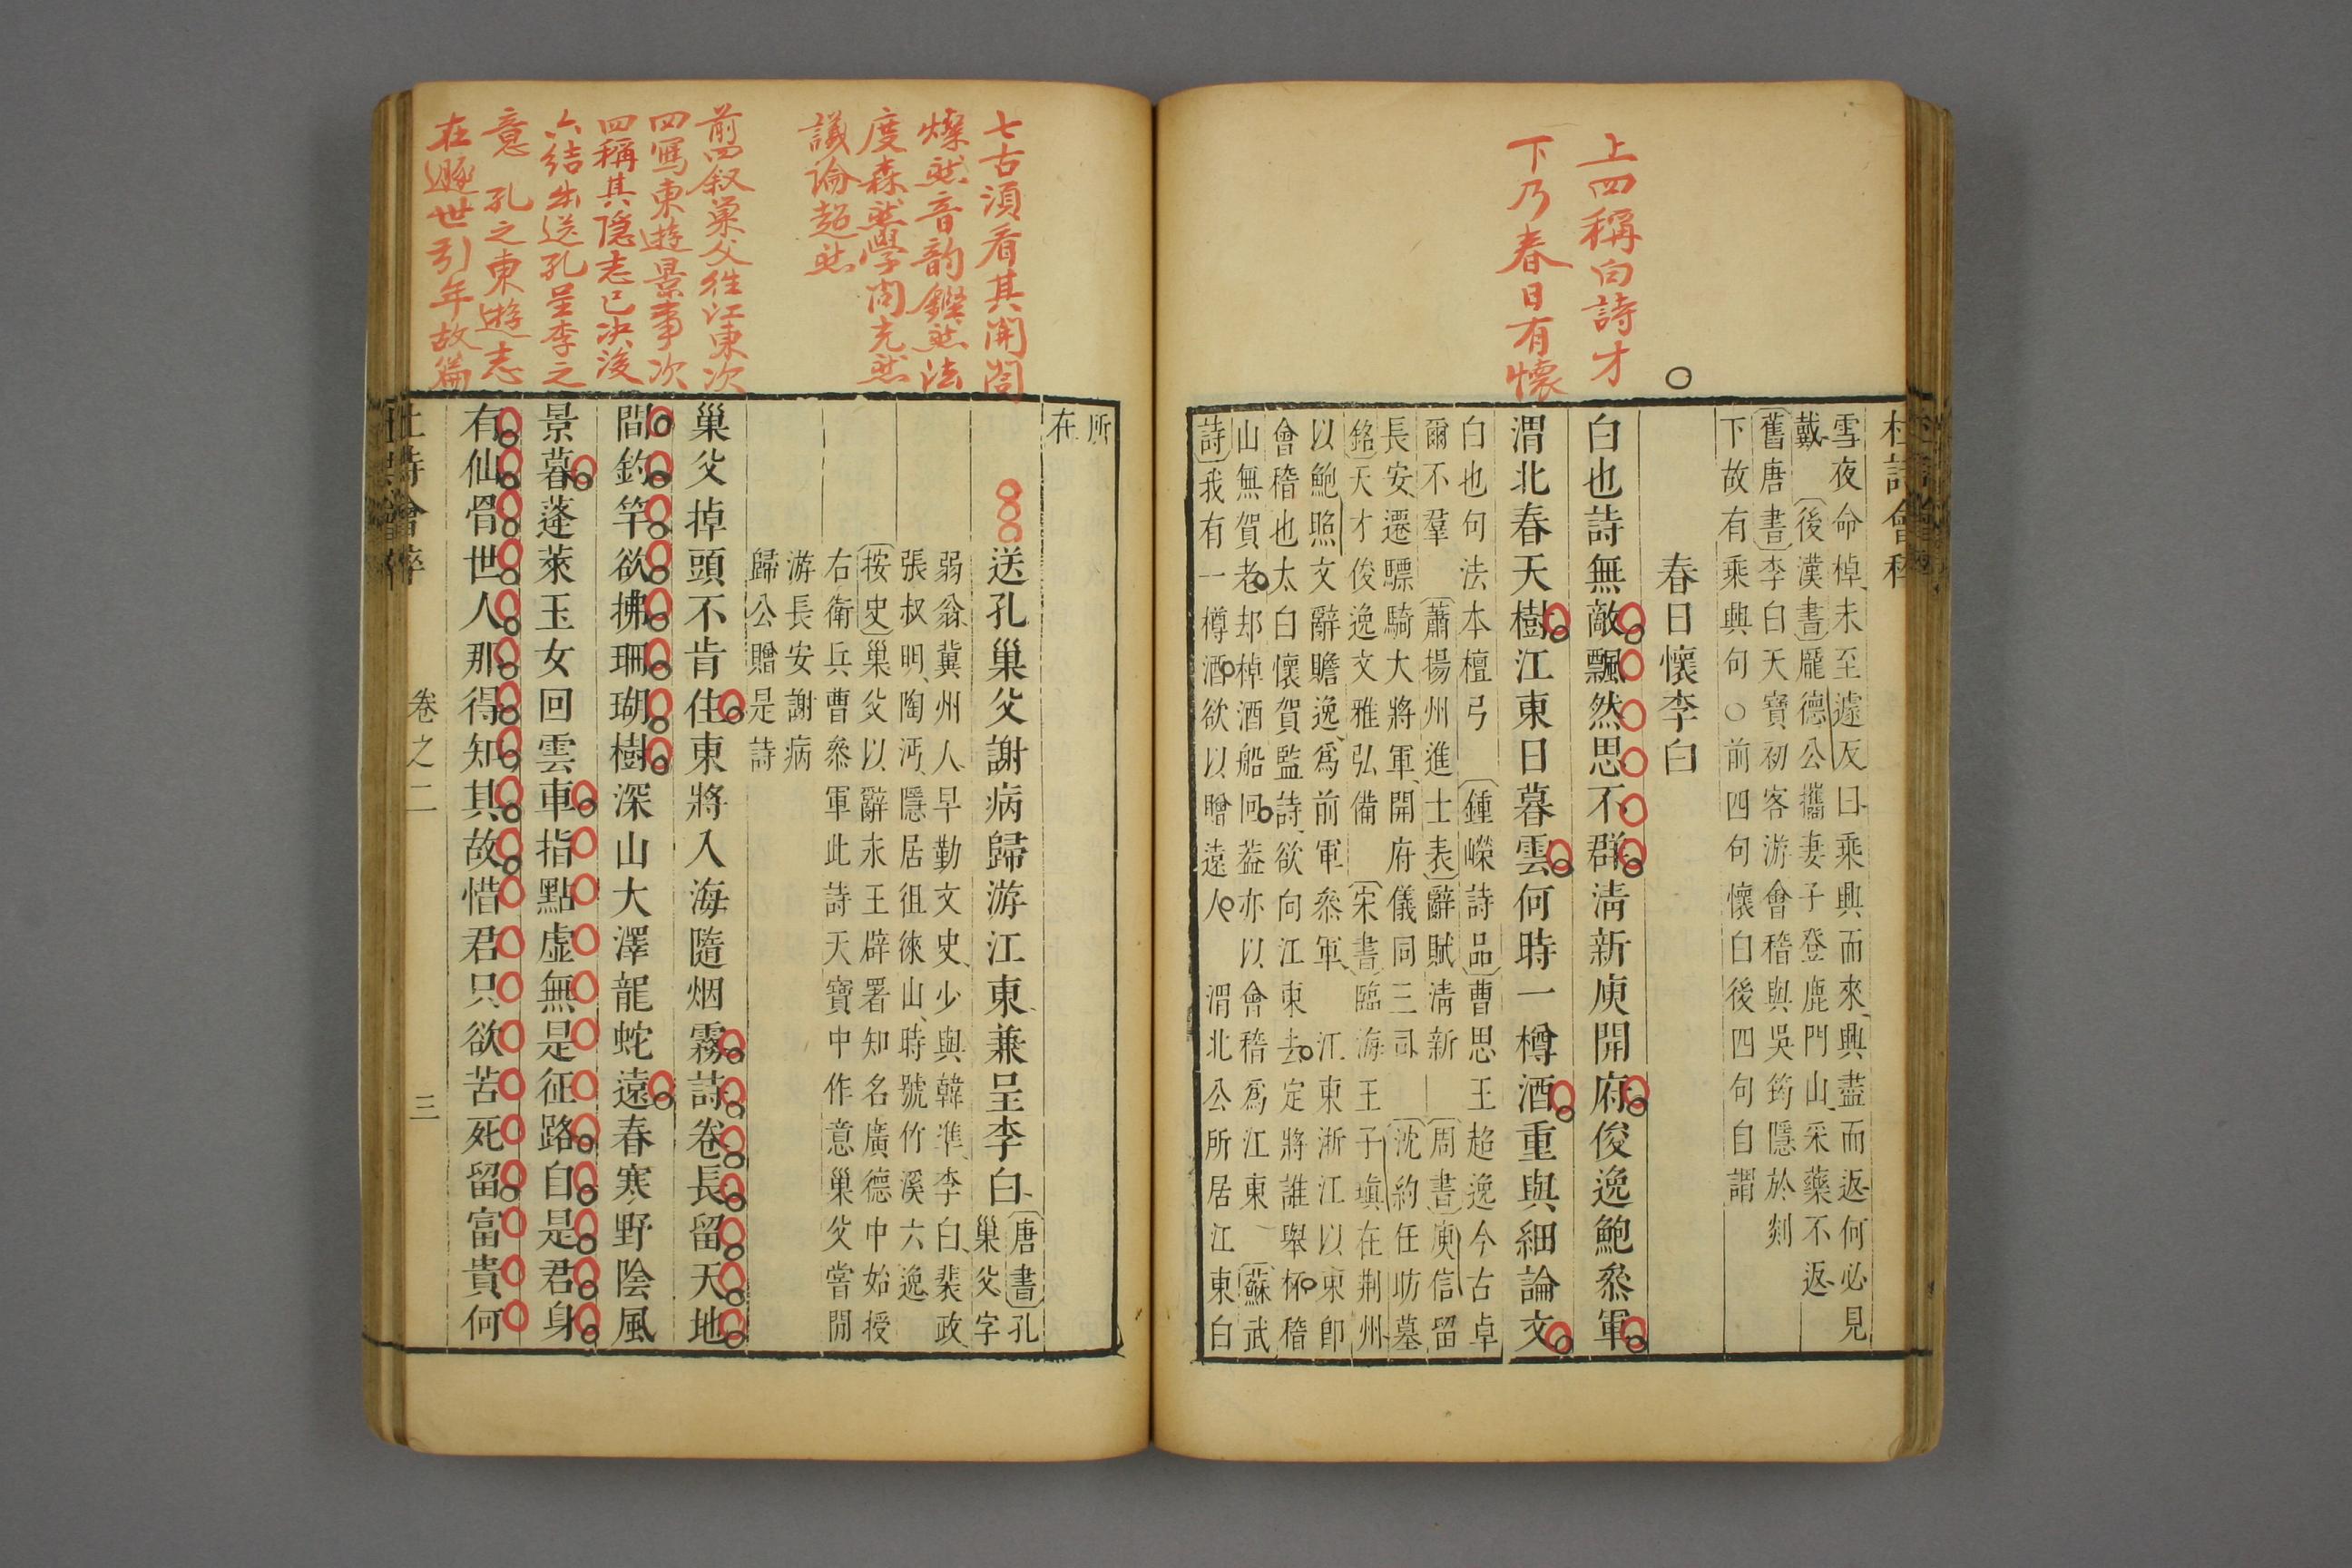 上四稱白詩才
下乃春日有懷
雪夜命棹未至遽反曰乘興而來興盡而返何必見
戴〔後漢書〕龐德公攜妻子登鹿門山采藥不返
〔舊唐書〕李白天寶初客游會稽與吳筠隱於剡
下故有乘興句○前四句懷白後四句自謂
春日懷李白
白也詩無敵飄然思不群清新庾開府俊逸鮑叅軍
渭北春天樹江東日暮雲何時一樽酒重與細論文
白也句法本檀弓〔鍾嶸詩品〕曹思王超逸今古卓
爾不羣〔蕭揚州進士表〕辭賦清新〔周書〕庾信留
長安遷驃騎大將軍開府儀同三司〔沈約任昉墓
銘〕天才俊逸文雅弘備〔宋書〕臨海王子塡在荆州
以鮑照文辭贍逸爲前軍叅軍江東浙江以東卽
會稽也太白懷賀監詩欲向江東去定將誰舉杯稽
山無賀老却棹酒船囘葢亦以會稽爲江東〔蘇武
詩〕我有一樽酒欲以贈遠人渭北公所居江東白
七古須看其開闔
燦然音韵鏗然法
度森然學問充然
議論超然
前四叙巢父往江東次
四寫東遊景事次
四稱其隱志已決後
六結出送孔呈李之
意孔之東遊志
在遯世引年故篇
所
在
送孔巢父謝病歸游江東兼呈李白〔唐書〕孔
巢父字
弱翁冀州人早勤文史少與韓準李白裴政
張叔明陶沔隱居徂徠山時號竹溪六逸
〔按史〕巢父以辭永王辟署知名廣德中始授
右衛兵曹叅軍此詩天寶中作意巢父嘗閒
游長安謝病
歸公贈是詩
巢父掉頭不肯住東將入海隨烟霧詩卷長留天地
間釣竿欲拂珊瑚樹深山大澤龍蛇遠春寒野陰風
景暮蓬萊玉女回雲車指點虛無是征路自是君身
有仙骨世人那得知其故惜君只欲苦死留富貴何
卷之二
三